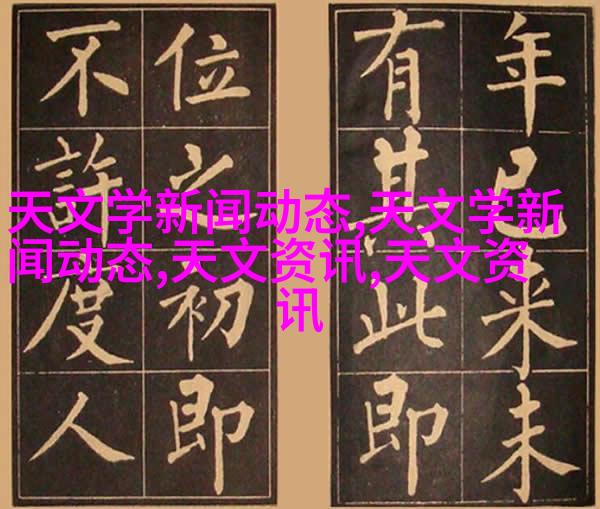 年已来未
有其此即
位之初即
不許度人
天文学新闻动态,天文学新
闻动态,天文资讯,天文资
讯